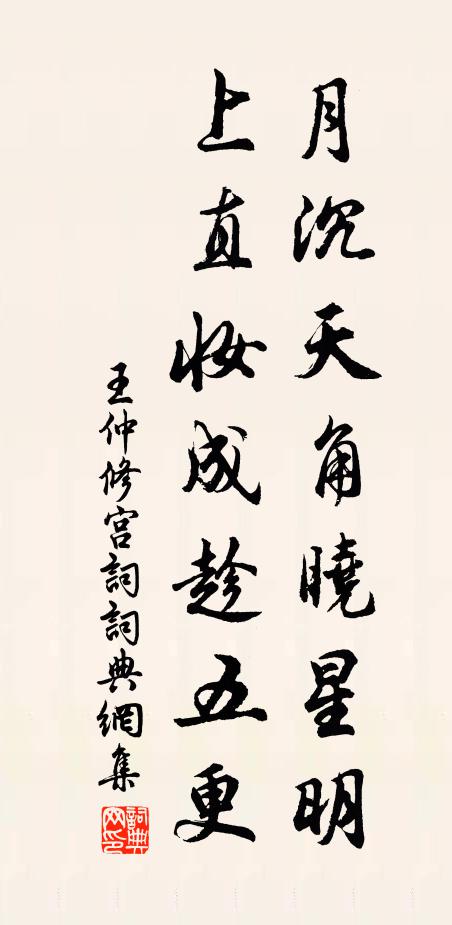 月沉天角曉星明
上直妝成趁五更
王仲修宮詞詞典網集
詞典網印